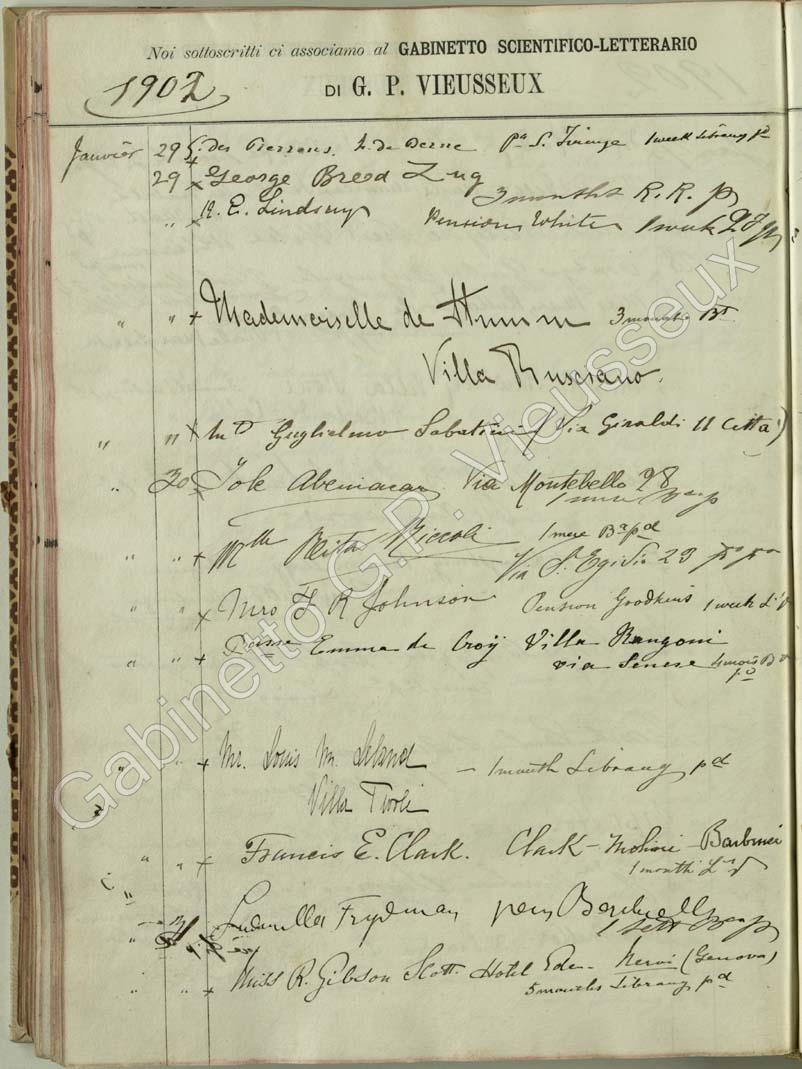 Noi sottoscritti ci associamo al GABINETTO SCIENTIFICO-LETTERARIO
1902
DI G. P. VIEUSSEUX
Janvier 29 S. des 1 week Library pd
29 x George Breed Zug
3 months R. R. p
" x R. E. Lindsay Pension White 1 week
" " + Mademoiselle de Stumm 3 months Bt
Villa Rusciano.
" " x Guglielmo Sabatini (Via Giraldi 11 Città)
" 30 x Via Montebello 28
1 mese
" " + Mlle Rita Riccoli 1 mese Ba pd
Via S. Egidio 23
" " x Mrs F R Johnson Pension Goodkins 1 week
" " + Emma de Croÿ Villa Mangoni
via Senese 4 mois B
pd
" " + Mr. Louis M. Leland - 1 month Library pd
Villa Tivoli
" " + Francis E. Clark. Clark -
1 month
" Ludmilla Frydman
1 sett
" " + Miss R. Gibson Scott. Hotel Eden - Nervi (Genova)
5 months Library pd
Gabinetto G.P. Vieusseux